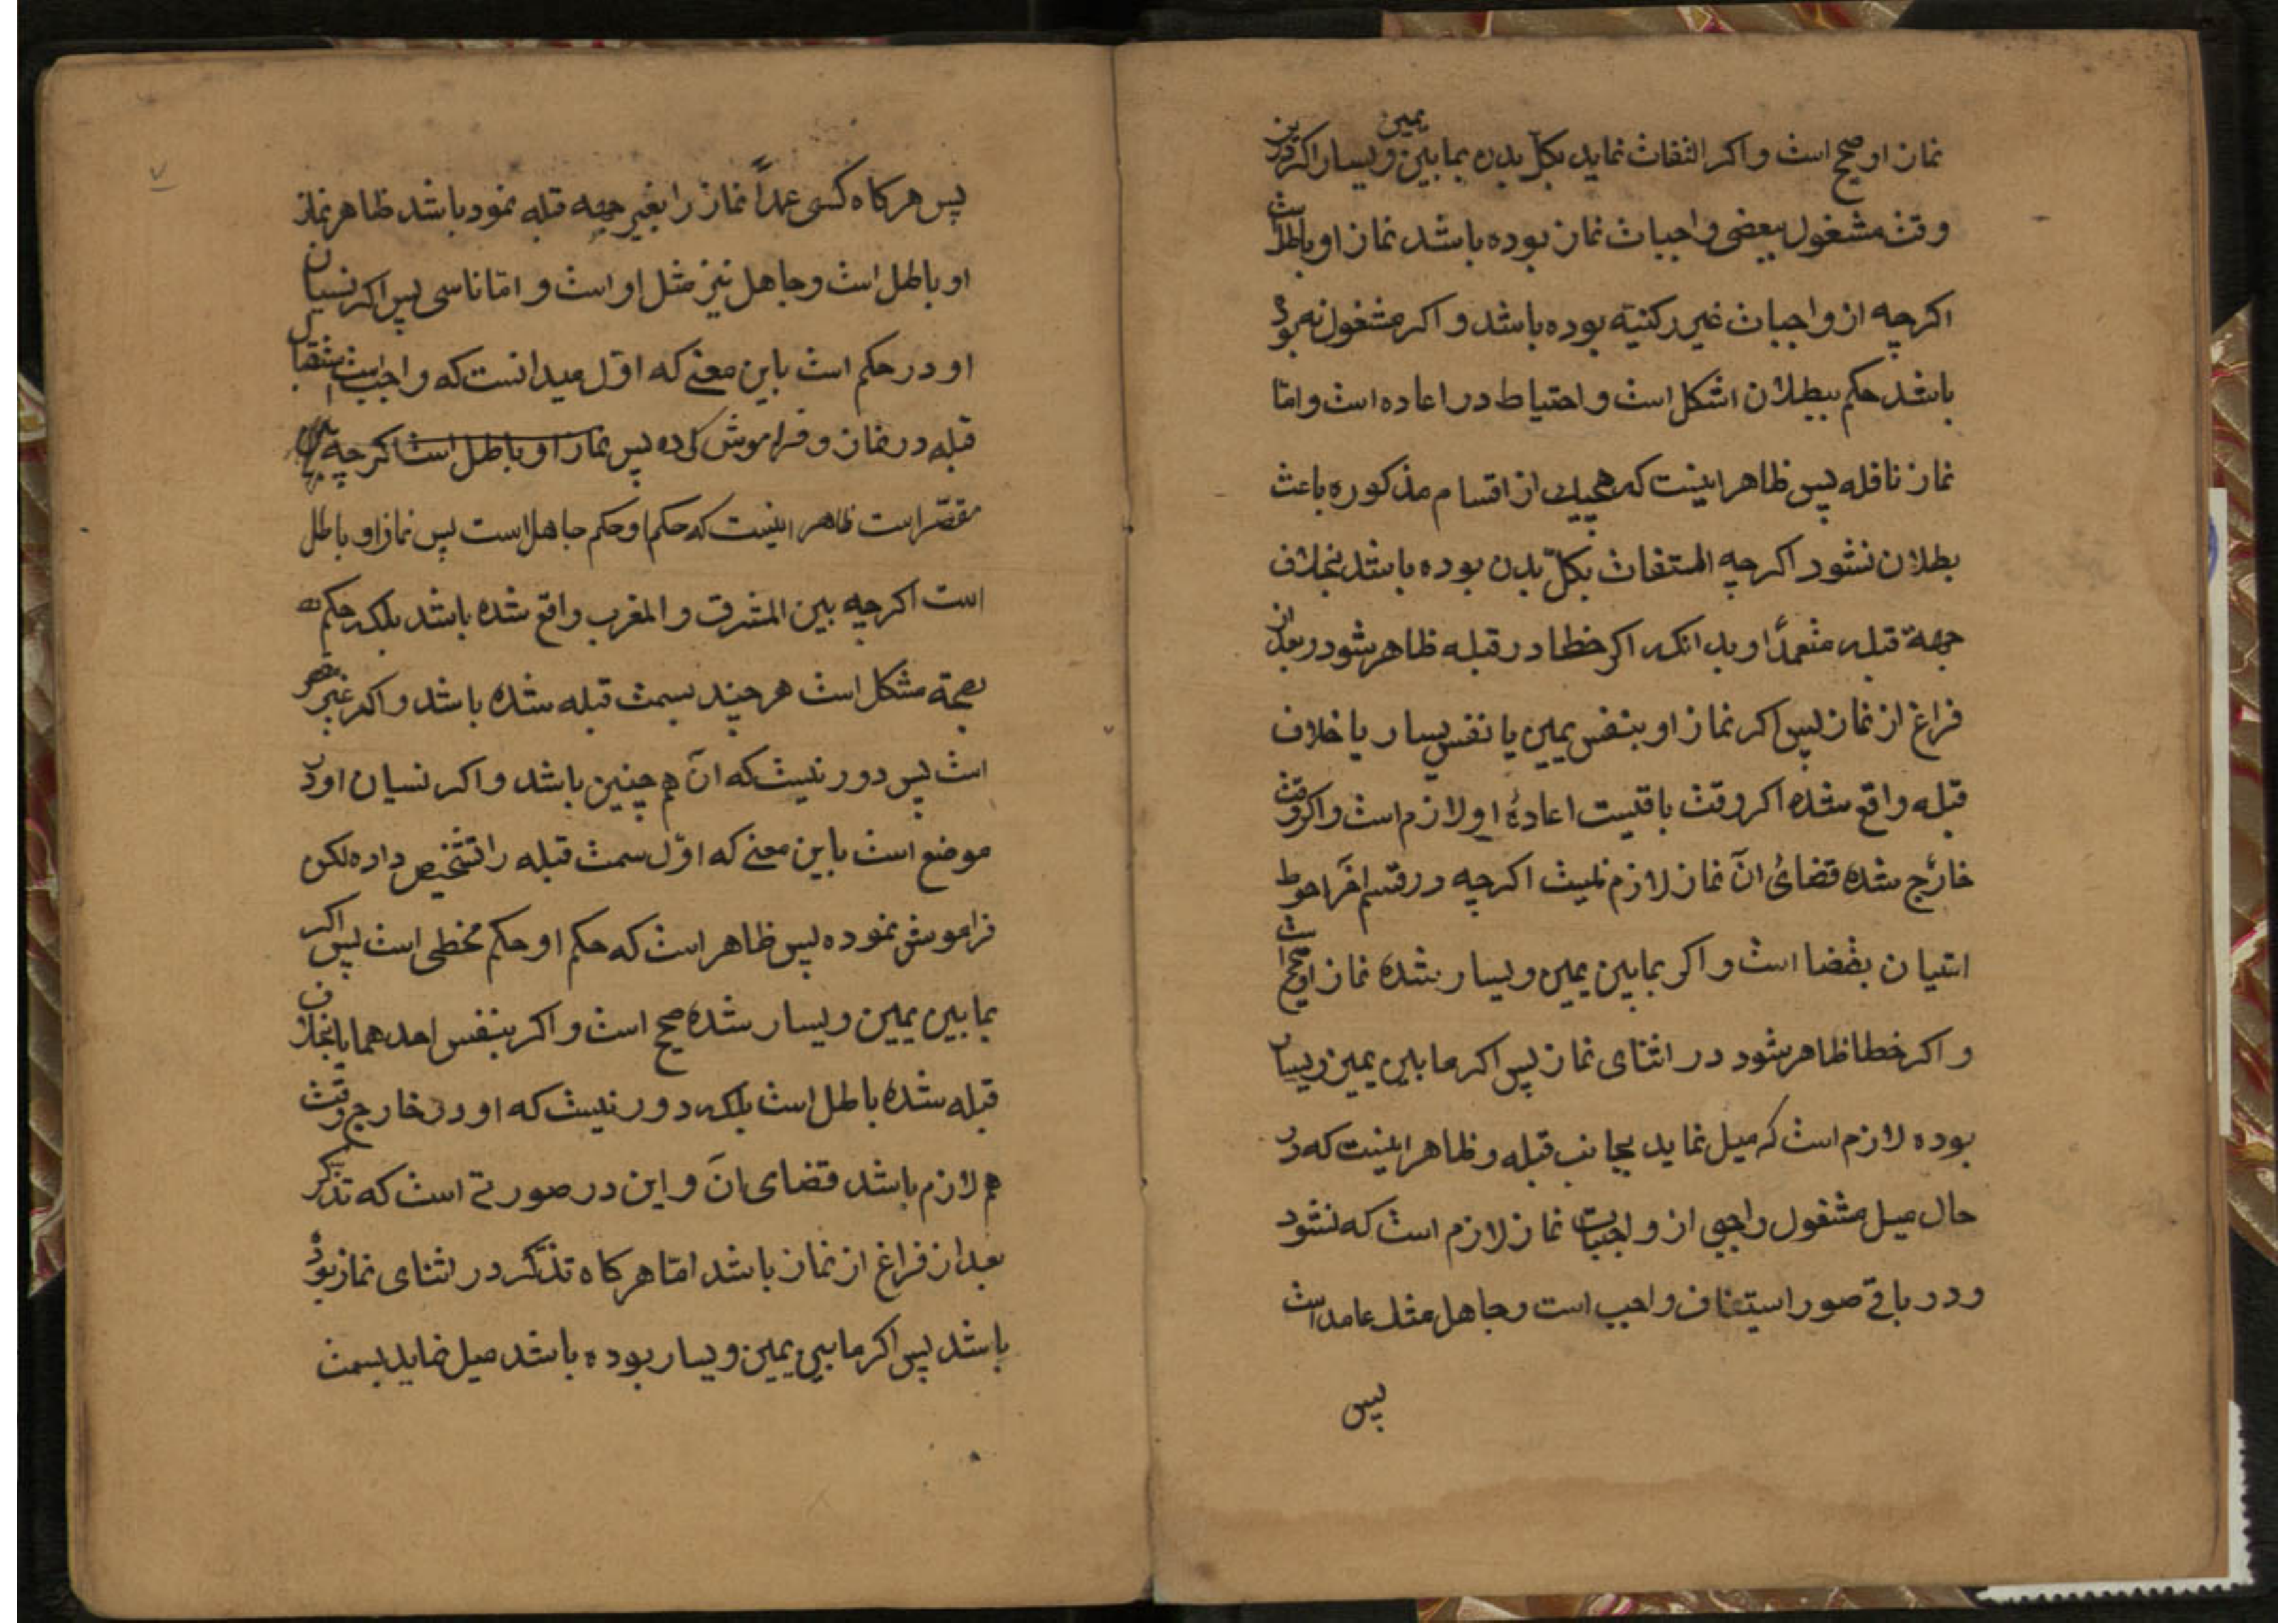 نماز او صحیح است و اکر التفات نماید بکل بدن بمابین یمین ویسار اکر درین
وقت مشغول ببعضی واجبات نماز بوده باشد نماز او باطل است
اکرچه از واجبات غیر رکنیة بوده باشد و اکر مشغول نه بوده
باشد حکم ببطلان اشکل است و احتیاط در اعاده است و امّا
نماز نافله پس ظاهر اینست که هیچیك از اقسام مذکوره باعث
بطلان نشود اکرچه التفات بکلّ بدن بوده باشد بخلاف
جهة قبله متعمدًا و بدانکه اکر خطا در قبله ظاهر شود در بعد از
فراغ از نماز پس اکر نماز او بنفس یمین یا نفس یسار یا خلاف
قبله واقع شده اکر وقت باقیست اعادهٔ او لازم است و اکر وقت
خارج شده قضائ انٓ نماز لازم نیست اکرچه در قسم اخر احوط
اتیان بقضا است و اکر بمابین یمین ویسار شده نماز او صحیح است
و اکر خطا ظاهر شود در اثنای نماز پس اکر مابین یمین ویسار
بوده لازم است که میل نماید بجانب قبله و ظاهر اینست که در
حال میل مشغول واجبی از واجبات نماز لازم است که نشود
و در باقی صور استیناف واجب است و جاهل مثل عامد است
پس
۷
پس هرکاه کسی عمداً نماز را بغیر جهه قبله نمود باشد ظاهر نماز
او باطل است و جاهل نیز مثل او است و امّا ناسی پس اکر نسیان
او در حکم است باین معنے که اوّل میدانست که واجب است استقبال
قبله در نماز و فراموش کرده پس نماز او باطل است اکرچه
مقصّر است ظاهر اینست که حکم او حکم جاهل است پس نماز او باطل
است اکرچه بین المشرق و المغرب واقع شده باشد بلکه حکم
بصحة مشکل است هرچند بسمت قبله شده باشد و اکر غیر مقصر
است پس دور نیست که انٓ هم چنین باشد و اکر نسیان او در
موضع است باین معنے که اوّل سمت قبله را تشخیص داده لکن
فراموش نموده پس ظاهر است که حکم او حکم مخطی است پس اکر
بمابین یمین ویسار شده صحیح است و اکر بنفس احدهما یا بخلاف
قبله شده باطل است بلکه دور نیست که او در خارج وقت
هم لازم باشد قضای انٓ و این در صورتے است که تذکّر
بعد از فراغ از نماز باشد امّا هرکاه تذکّر در اثنای نماز بوده
باشد پس اکر مابین یمین ویسار بوده باشد میل نماید بسمت